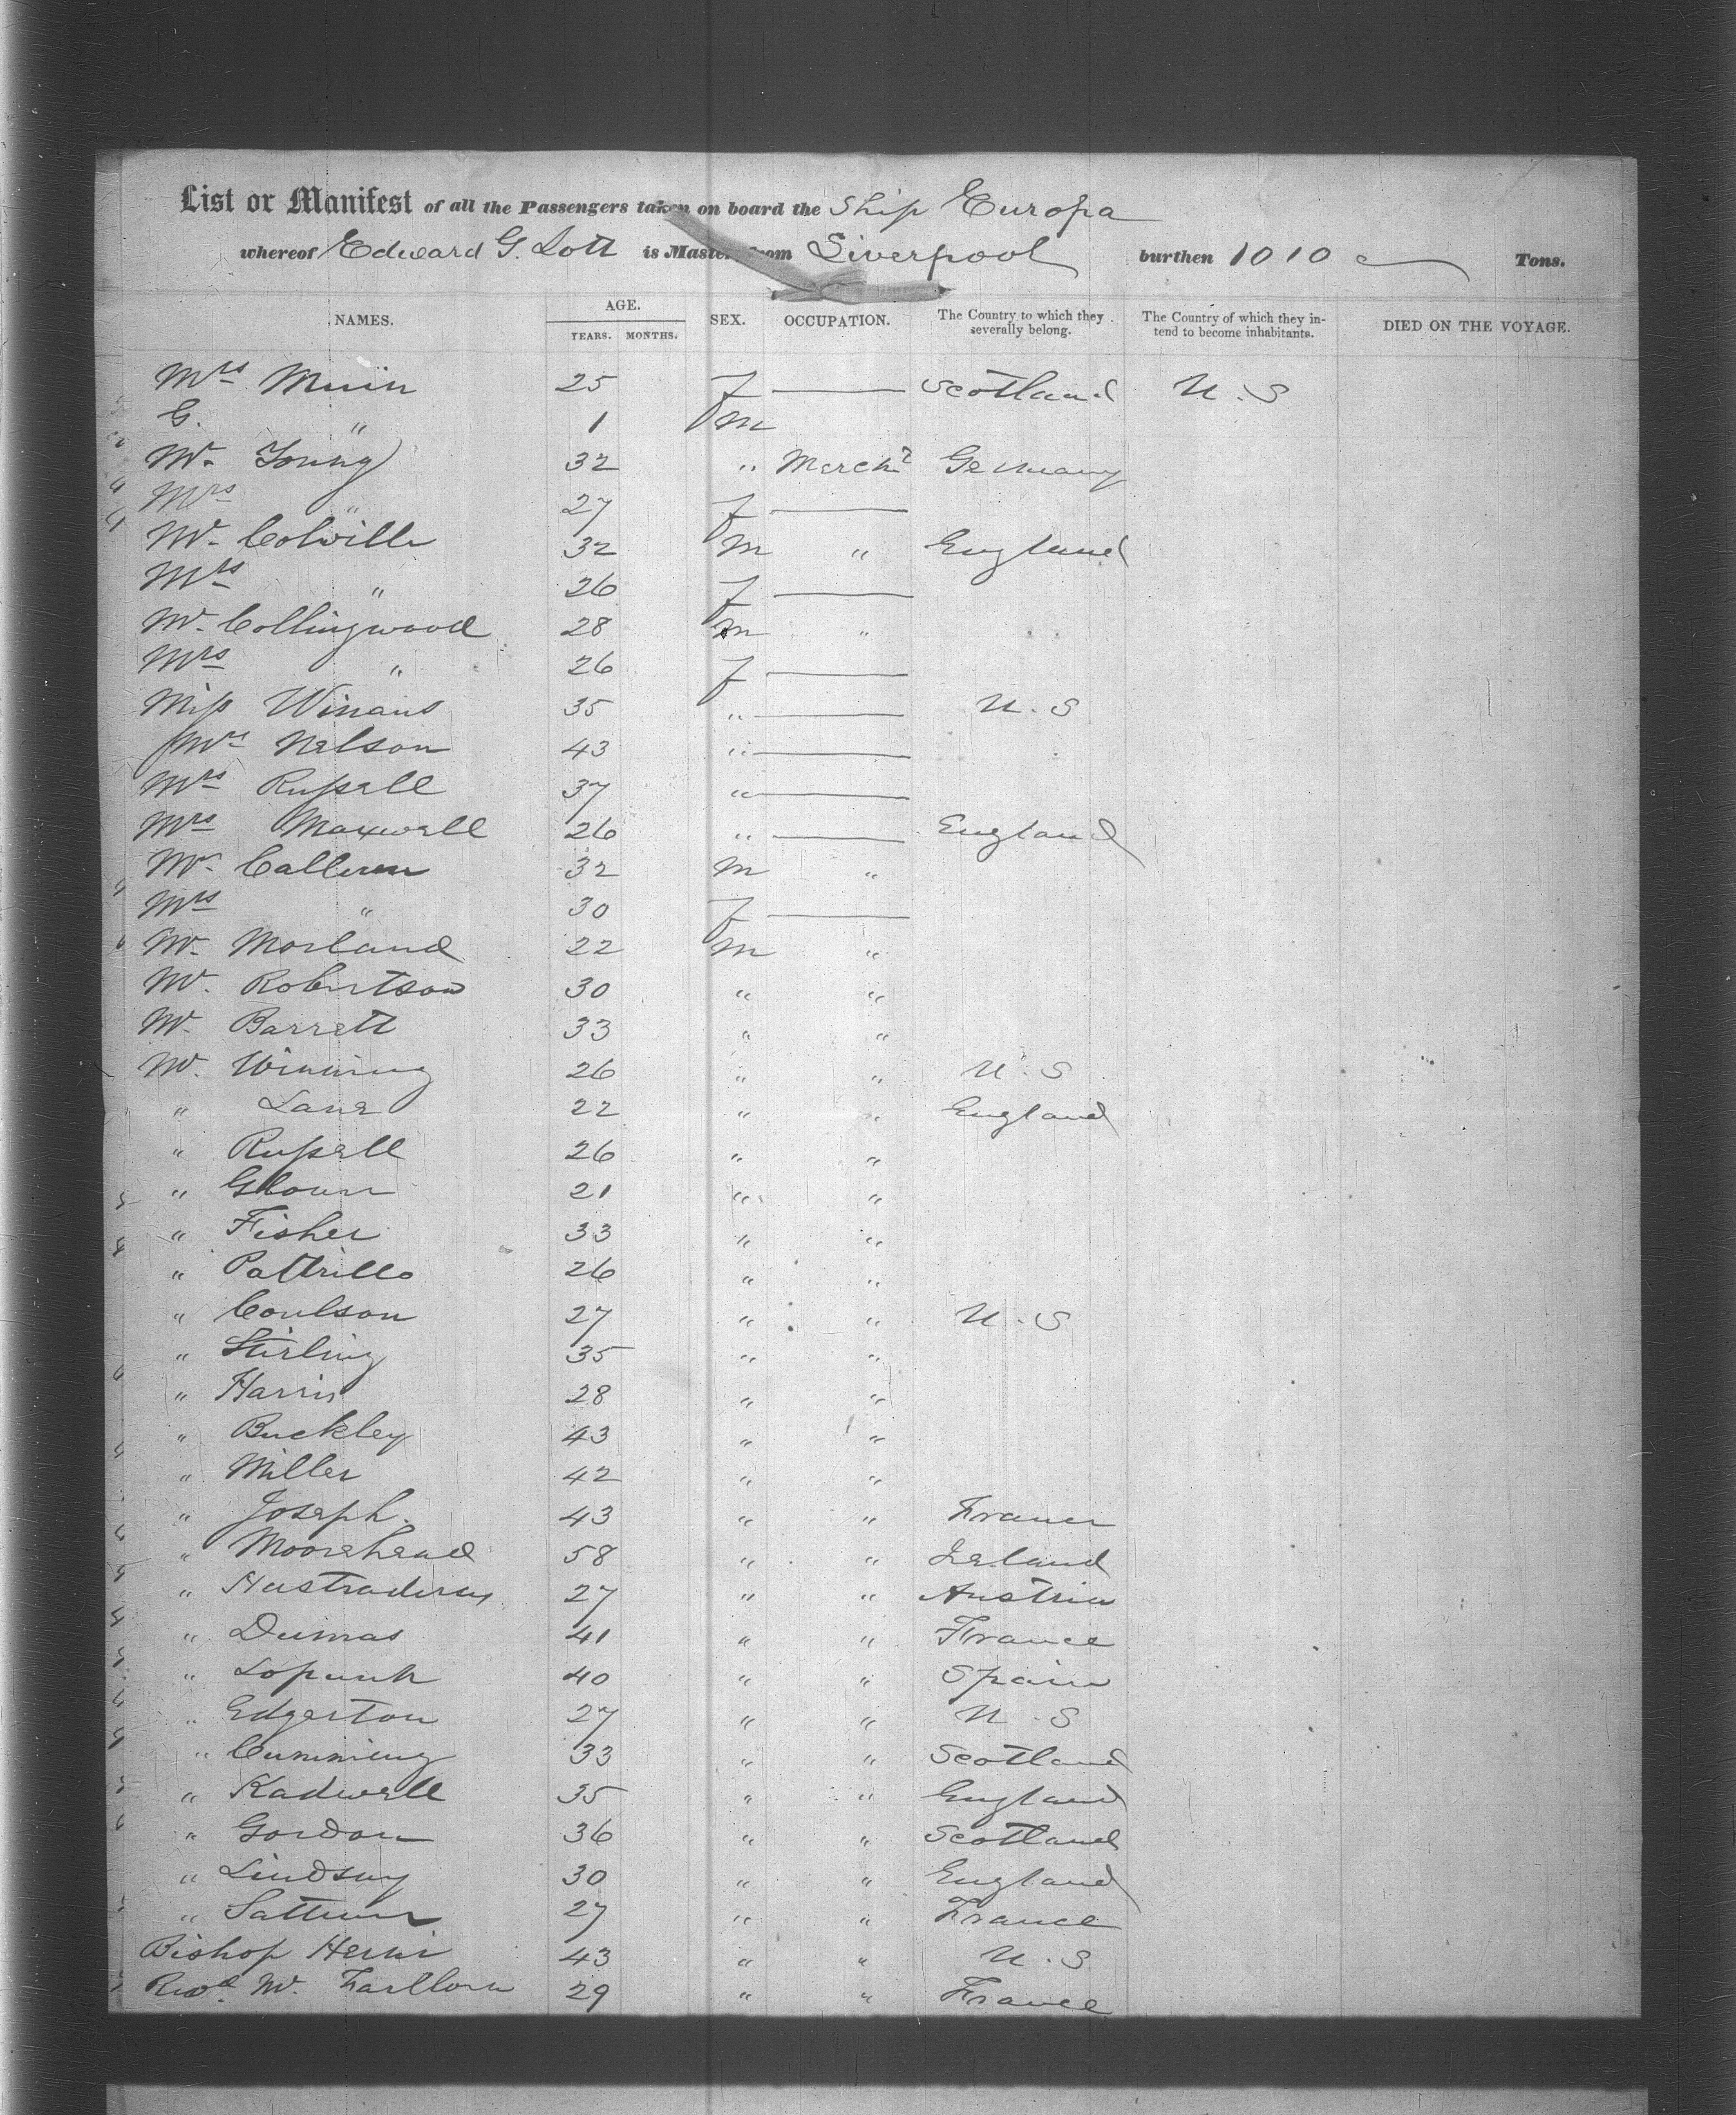 List or Manifest of all the Passengers taken on board the Ship Europa
whereof Edward G. Lott is Master, from Liverpool burthen 1010 Tons.
NAMES. AGE. YEARS. MONTHS. SEX. OCCUPATION. The Country to which they severally belong. The Country of which they intend to become inhabitants. DIED ON THE VOYAGE.
Mrs Muin 25 f — Scotland U.S
G. " 1 m
Mr. Young 32 " Mercht Germany
Mrs " 27 f —
Mr. Colville 32 m " England
Mrs " 26 f —
Mr. Collingwood 28 m "
Mrs " 26 f —
Miss Winans 35 " — U.S
Mrs Nelson 43 " —
Mrs Russell 37 " —
Mrs Maxwell 26 " — England
Mr. 32 m "
Mrs " 30 f —
Mr. Morland 22 m "
Mr. Robertson 30 " "
Mr. Barrett 33 " "
Mr. Winning 26 " " U.S
" Lane 22 " " England
" Russell 26 " "
" 21 " "
" Fisher 33 " "
" Pattrillo 26 " "
" Coulson 27 " " U.S
" Stirling 35 " "
" Harris 28 " "
" Buckley 43 " "
" Miller 42 " "
" Joseph. 43 " " France
" Moorehead 58 " " Ireland
" 27 " " Austria
" Dumas 41 " " France
" 40 " " Spain
" Edgerton 27 " " U.S
" Cumming 33 " " Scotland
" Kadwell 35 " " England
" Gordon 36 " " Scotland
" Lindsay 30 " " England
" 27 " " France
Bishop 43 " " U.S
Revd. Mr. 29 " " France